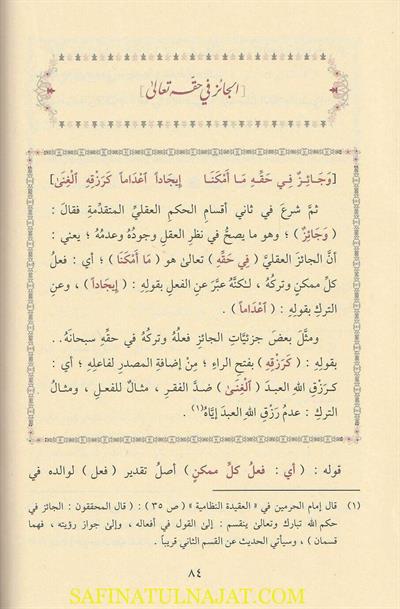 [الجائز في حقّه تعالى]
[وَجَائِزٌ فِي حَقِّهِ مَا أَمْكَنَا إِيجَاداً اعْدَاماً كَرَزْقِهِ الْغِنَىٰ]
ثمَّ شرعَ في ثاني أقسامِ الحكمِ العقليِّ المتقدِّمةِ فقالَ :
( وَجَائِزٌ ) ؛ وهو ما يصحُّ في نظرِ العقلِ وجودُهُ وعدمُهُ ؛ يعني :
أنَّ الجائزَ العقليَّ ( فِي حَقِّهِ ) تعالىٰ هو ( مَا أَمْكَنَا ) ؛ أي : فعلُ
كلِّ ممكنٍ وتركُهُ ، لـٰكنَّهُ عبَّرَ عنِ الفعلِ بقولِهِ : ( إِيجَاداً ) ، وعنِ
التركِ بقولِهِ : ( اعْدَاماً ) .
ومثَّلَ بعضَ جزئيَّاتِ الجائزِ فعلُهُ وتركُهُ في حقِّهِ سبحانَهُ . .
بقولِهِ : ( كَرَزْقِهِ ) بفتحِ الراءِ ؛ مِنْ إضافةِ المصدرِ لفاعلِهِ ؛ أي :
كـرَزْقِ اللهِ العبـدَ ( الْغِنَىٰ ) ضـدَّ الفقـرِ ، مثـالٌ للفعـلِ ، ومثـالُ
التركِ : عدمُ رَزْقِ اللهِ العبدَ إيَّاهُ(١) .
قوله : ( أي : فعلُ كلِّ ممكنٍ ) أصلُ تقدير ( فعل ) لوالده في
(١) قال إمام الحرمين في « العقيدة النظامية » ( ص ٣٥ ) : ( قال المحققون : الجائز في
حكم الله تبارك وتعالى ينقسم : إلى القول في أفعاله ، وإلى جواز رؤيته ، فهما
قسمان ) ، وسيأتي الحديث عن القسم الثاني قريباً .
٨٤
SAFINATULNAJAT.COM